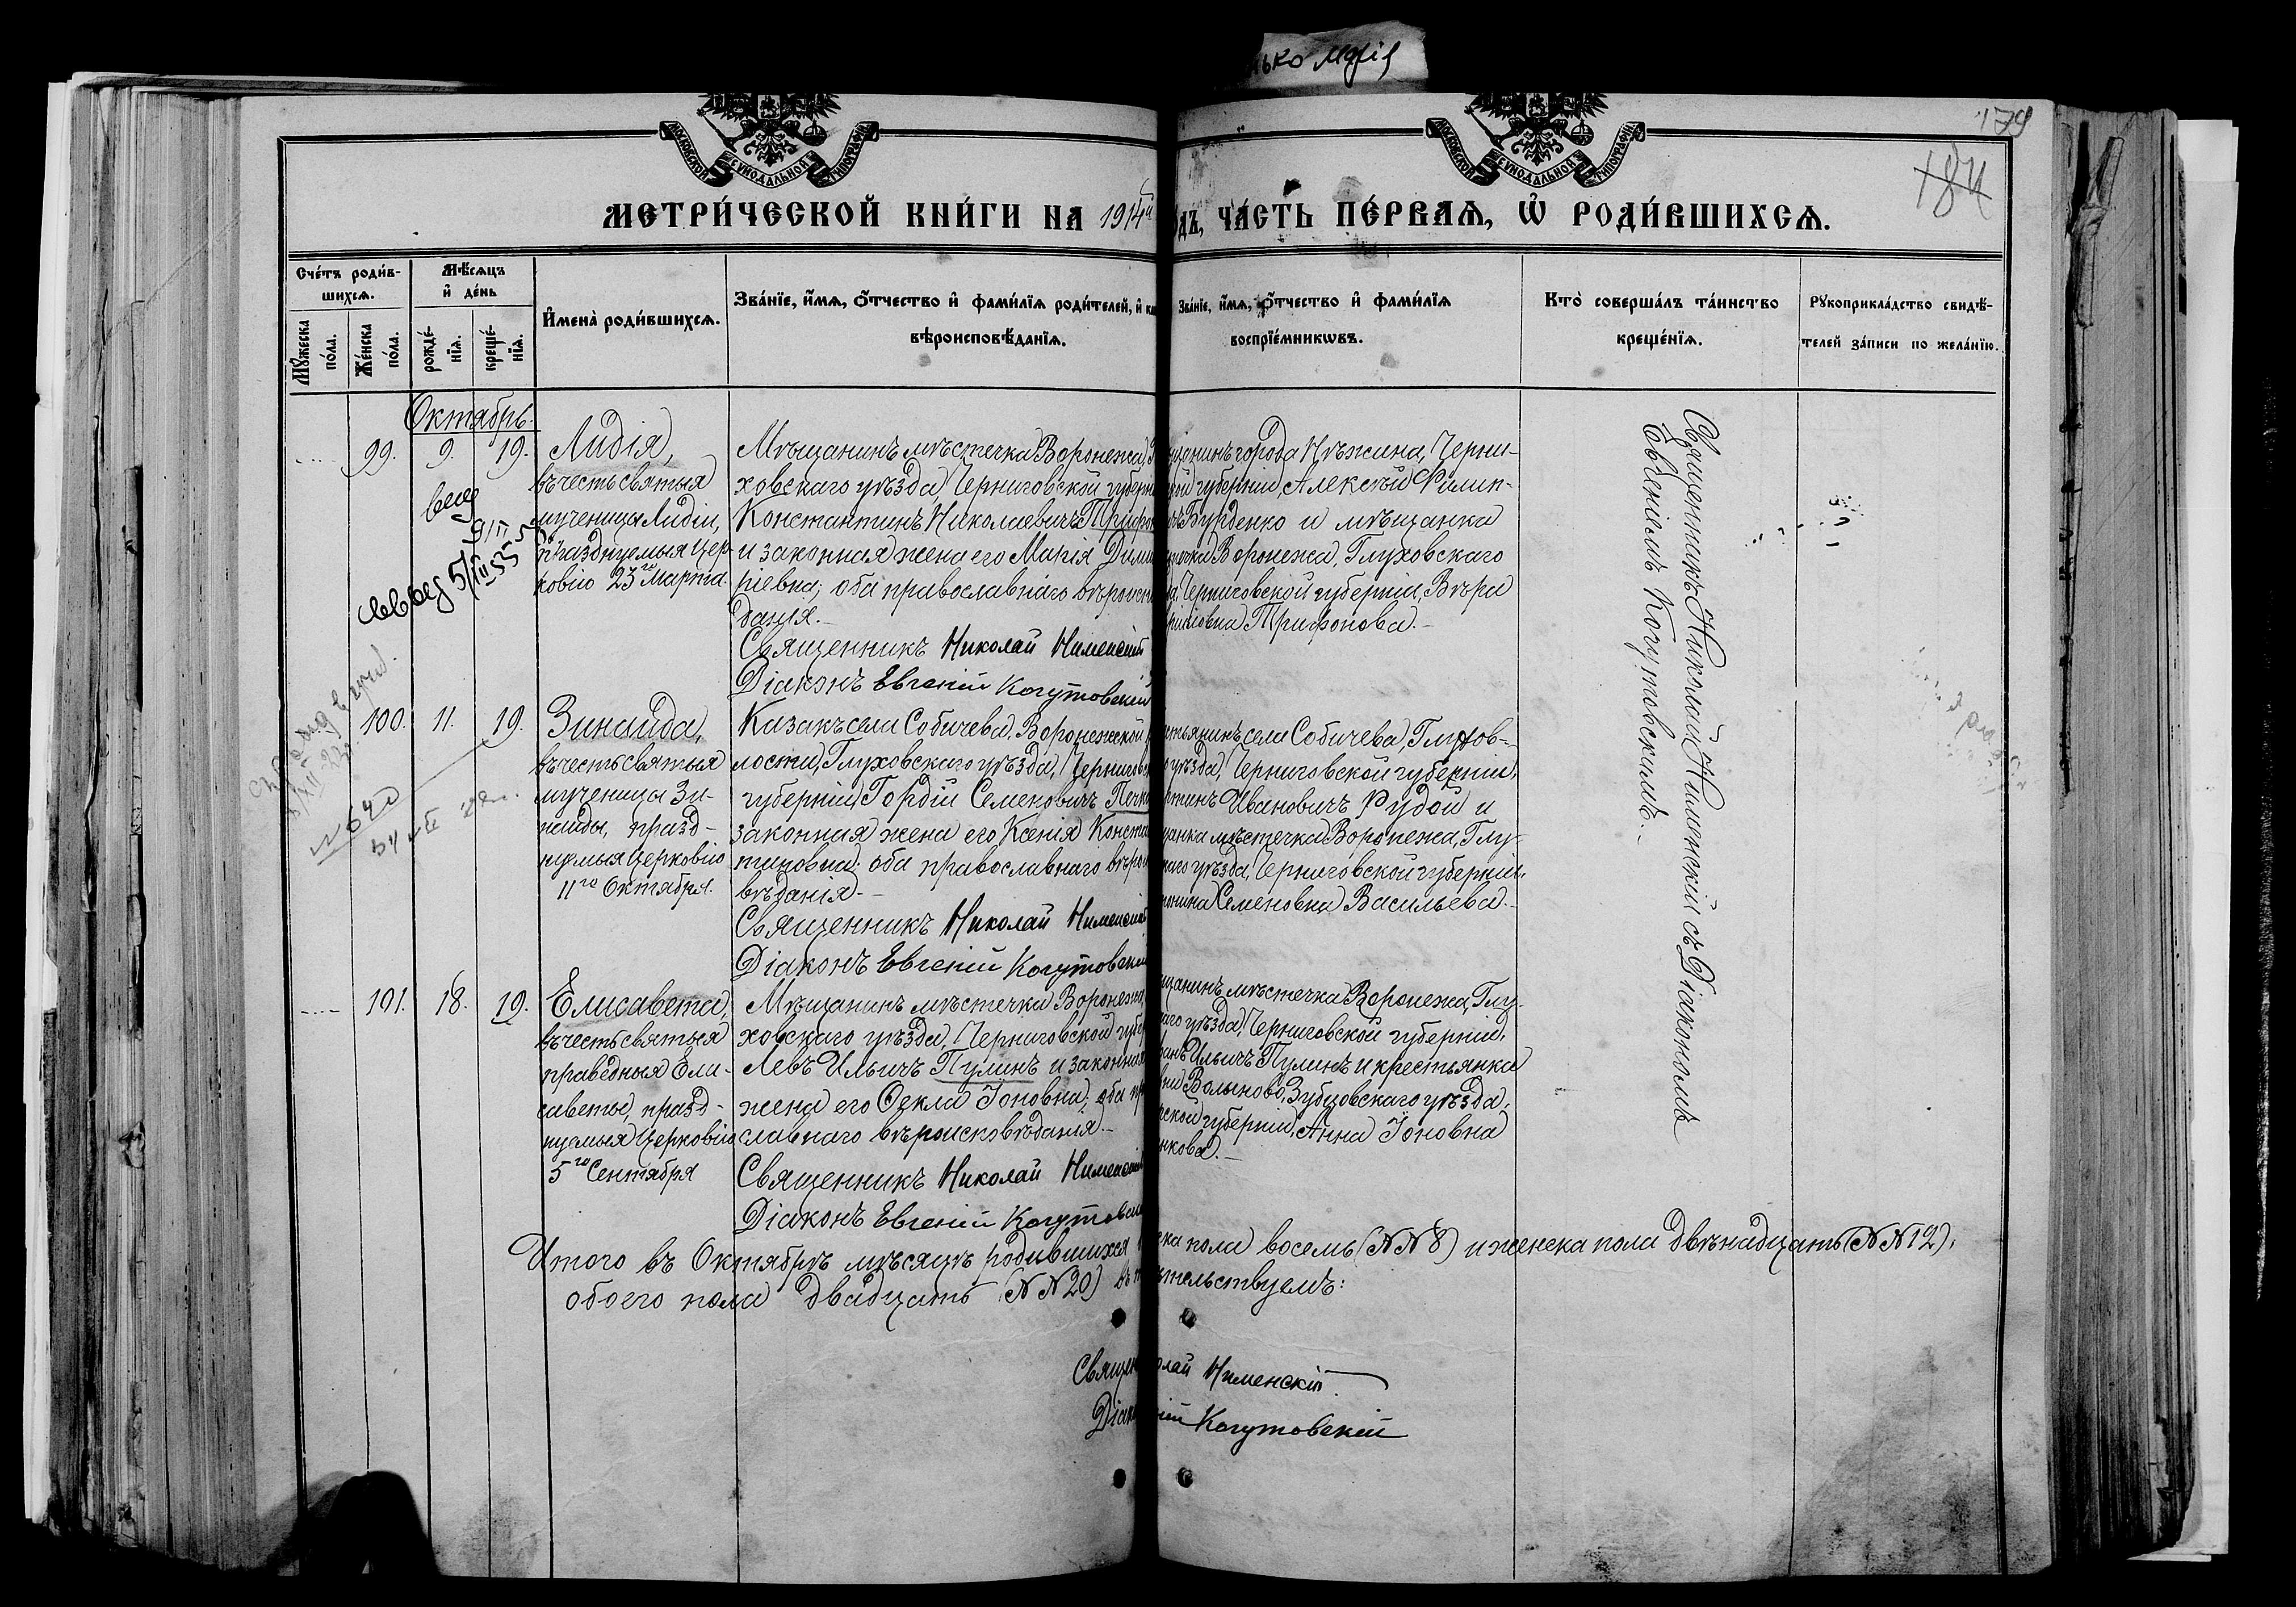 нько Марія
179
184
МОСКОВСКОЙ СѴНОДАЛЬНОЙ ТИПОГРАФІИ
МОСКОВСКОЙ СѴНОДАЛЬНОЙ ТИПОГРАФІИ
МЕТРИ́ЧЕСКОЙ КНИ́ГИ НА 1914й
ОДЪ, ЧА́СТЬ ПЕ́РВАѦ, Ѽ РОДИ́ВШИХСѦ.
Сче́тъ роди́в-
шихсѧ.
Мꙋ́жеска
по́ла.
Же́нска
по́ла.
Мѣ́сѧцъ
и҆ де́нь
рожде́-
нїѧ.
креще́-
нїѧ.
И҆мена̀ роди́вшихсѧ.
Зва́нїе, и҆́мѧ, ѻ҆́тчество и҆ фами́лїѧ роди́телей, и҆ ка
вѣроисповѣ́данїѧ.
Зва́нїе, и҆́мѧ, ѻ҆́тчество и҆ фами́лїѧ
воспрїе́мникѡвъ.
Кто̀ соверша́лъ та́инство
креще́нїѧ.
Рꙋкоприкла́дство свидѣ́-
телей за́писи по жела́нїю.
Октябрь.
99.
9.
19.
Лидія,
въ честь святыя
мученицы Лидіи,
празднуемыя Цер-
ковію 23го Марта.
Мѣщанинъ мѣстечка Воронежа, Г
ховскаго уѣзда, Черниговской губерн
Константинъ Николаевичъ Трифон
и законная жена его Марія Дими
ріевна; оба православнаго вѣроиспо
данія.-
Священникъ Николай Нименскій
Діаконъ Евгеній Когутовскій
щанинъ города Нѣжина, Черни-
кой губерніи, Алексѣй Филип-
чъ Бурденко и мѣщанка
течка Воронежа, Глуховскаго
да, Черниговской губерніи, Вѣра
Трифонова.-
Священникъ Николай Нименскій съ Діакономъ
Евгеніемъ Когутовскимъ.-
100.
11.
19.
Зинаида,
въ честь святыя
мученицы Зи-
наиды, празд-
нуемыя Церковію
11го Октября.
Казакъ села Собичева, Воронежской в
лости, Глуховскаго уѣзда, Черниговск
губерніи, Гордій Семеновичъ Печк
законная жена его Ксенія Конста
тиновна; оба православнаго вѣроис
вѣданія.-
Священникъ Николай Нименскій
Діаконъ Евгеній Когутовскій
стьянинъ села Собичева, Глухов-
о уѣзда, Черниговской губерніи,
Ивановичъ Рудой и
щанка мѣстечка Воронежа, Глу-
скаго уѣзда, Черниговской губерніи,
Семеновна Васильева.-
101.
18.
19.
Елисавета,
въ честь святыя
праведныя Ели-
саветы, празд-
нуемыя Церковію
5го Сентября
Мѣщанинъ мѣстечка Воронежа,
ховскаго уѣзда, Черниговской губер
Левъ Ильичъ Пулинъ и законная
жена его Ѳекла Іоновна; оба пра
славнаго вѣроисповѣданія.-
Священникъ Николай Нименскій
Діаконъ Евгеній Когутовскій
щанинъ мѣстечка Воронежа, Глу-
аго уѣзда, Черниговской губерніи,
Ильичъ Пулинъ и крестьянка
вни Волыново, Зубцовскаго уѣзда,
ской губерніи, Анна Іоновна
нкова.-
Итого въ Октябрѣ мѣсяцѣ родившихся
ска пола восемь (№№ 8) и женска пола двѣнадцать (№№ 12),
обоего пола двадцать (№№ 20)
тельствуемъ:
Священ
олай Нименскій
Діако
ній Когутовскій